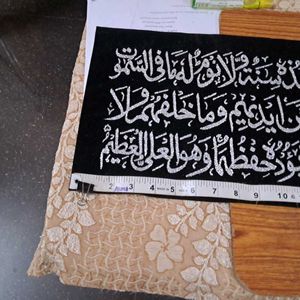 ذه سنة ولا نوم له ما في السموت
ن ايديهم وما خلفهم ولا
ؤده حفظهما وهو العلي العظيم
2 3 4 5 6 7 8 9 10